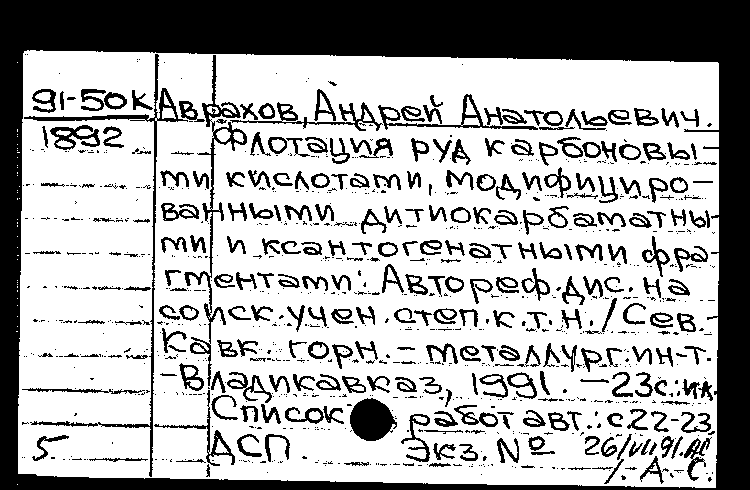 91-50к Аврахов, Андрей Анатольевич.
1892 Флотация руд карбоновы-
ми кислотами, модифициро-
ванными дитиокарбаматны-
ми и ксантогенатными фра-
гментами: Автореф.дис. на
соиск.учен.степ.к.т.н./Сев.-
Кавк. горн.-металлург.ин-т.
-Владикавказ, 1991. -23с.:ил.
Список работ авт.: с22-23
5 ДСП. Экз. № 26/VII 91.
А. С.